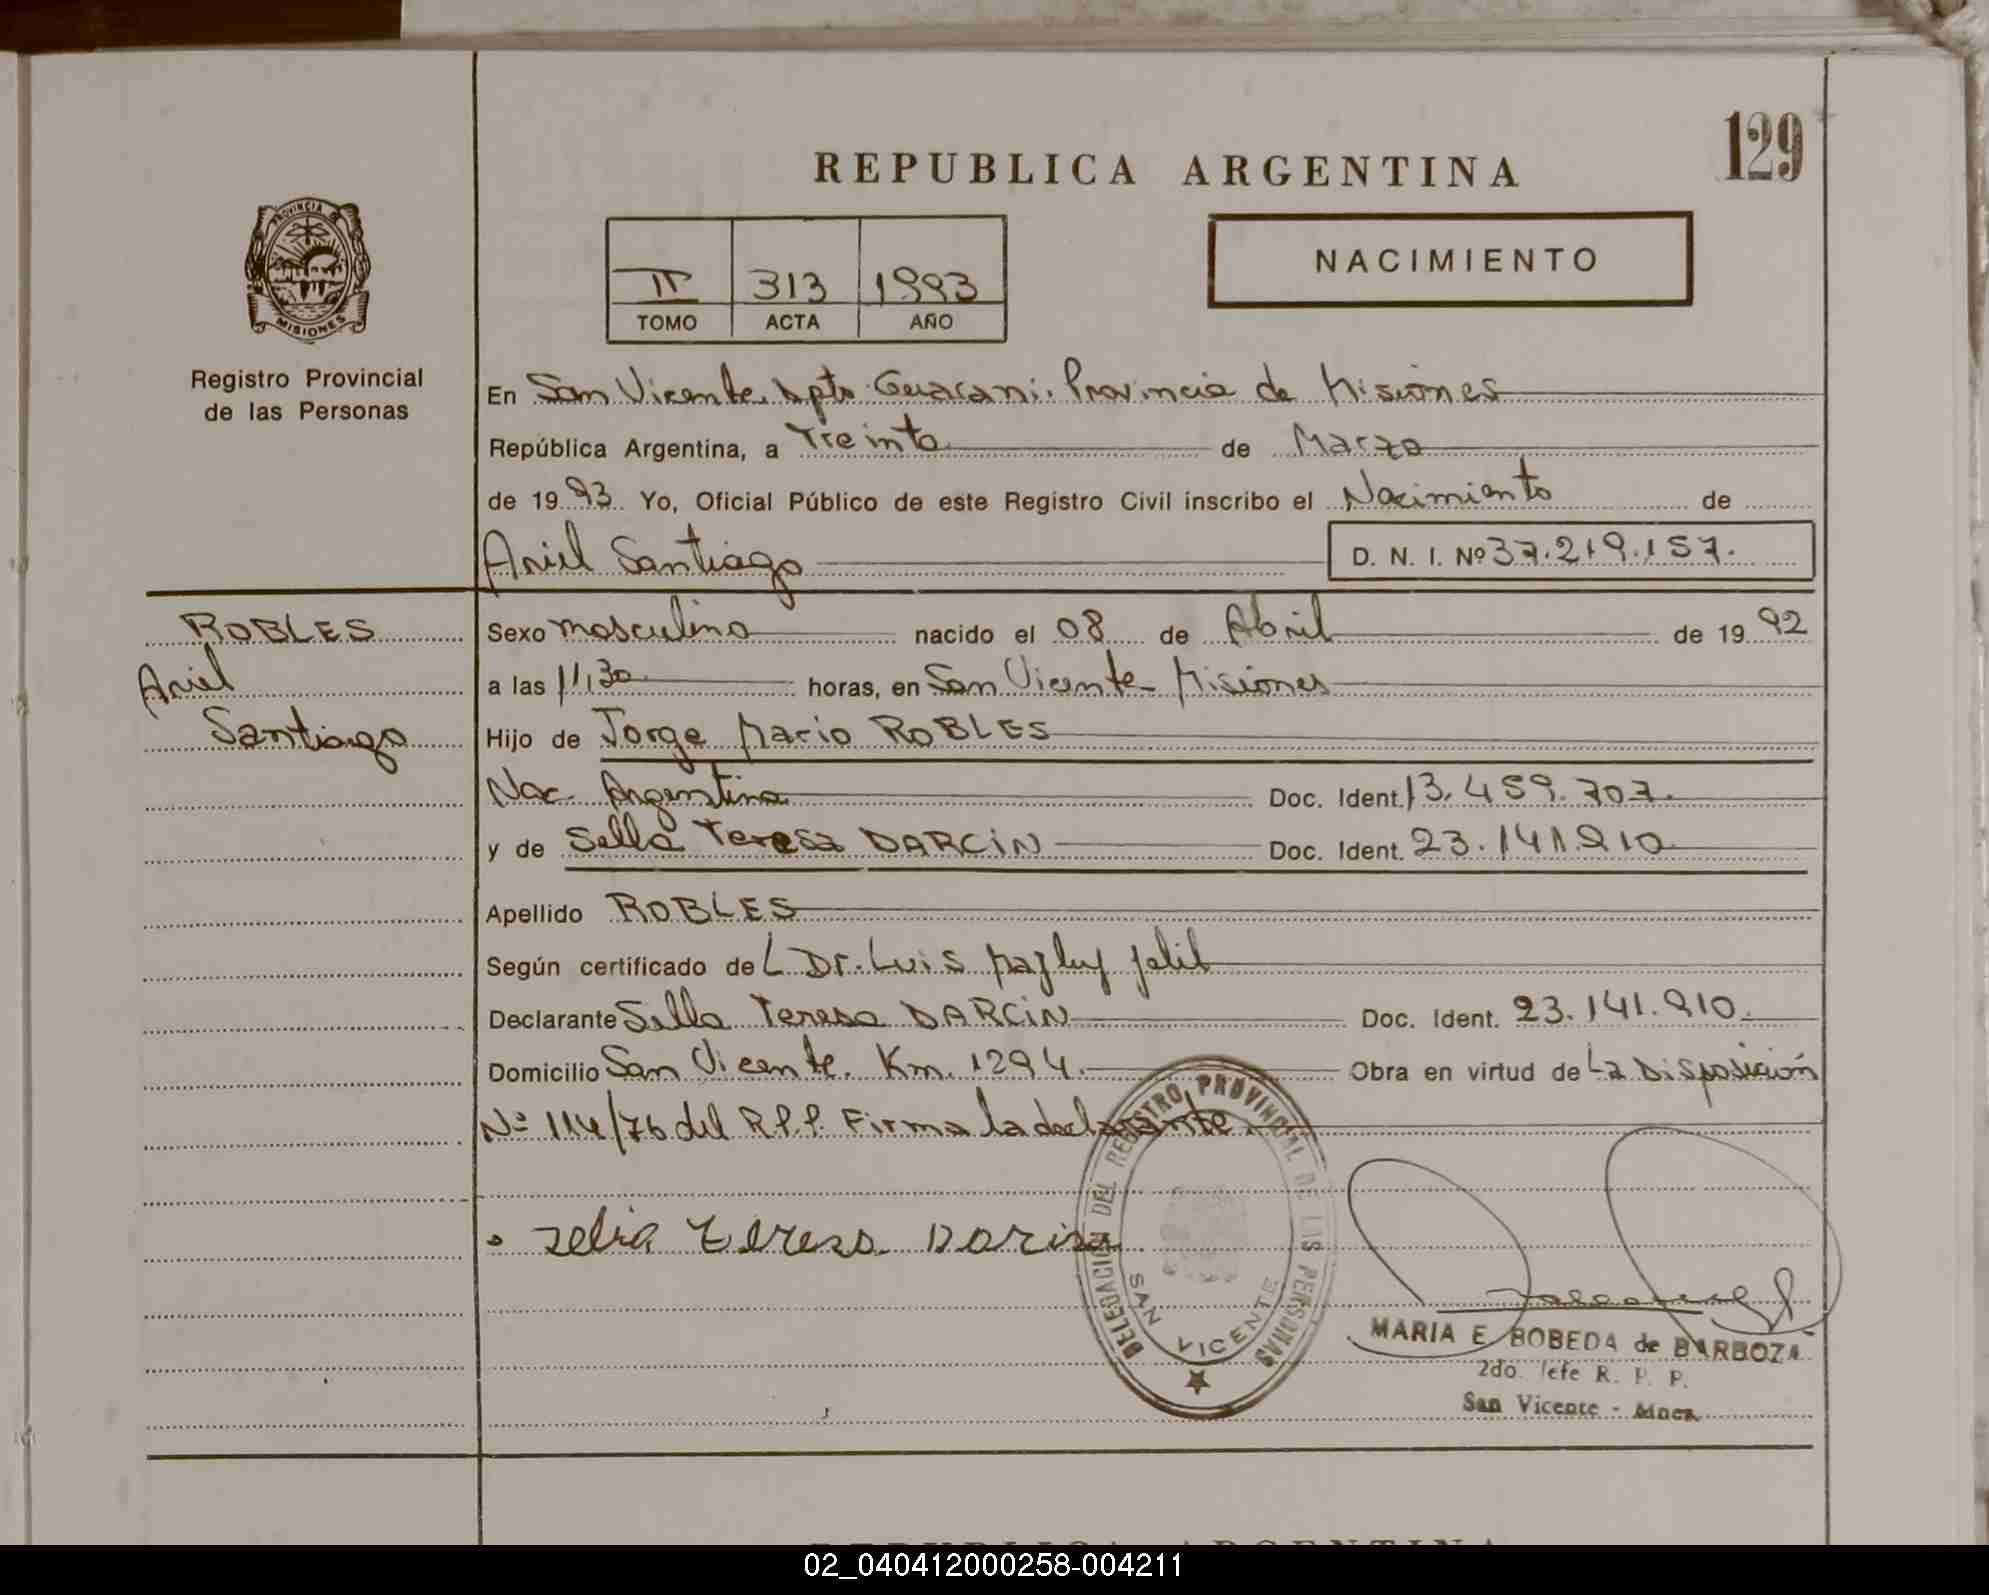 129
REPUBLICA ARGENTINA
PROVINCIA DE
MISIONES
Registro Provincial
de las Personas
II 313 1993
TOMO ACTA AÑO
NACIMIENTO
En San Vicente. Dpto Guarani. Provincia de Misiones
República Argentina, a Treinta de Marzo
de 1993 Yo, Oficial Público de este Registro Civil inscribo el Nacimiento de
Ariel Santiago D. N. I. Nº 37.219.157.
ROBLES
Ariel
Santiago
Sexo masculino nacido el 08 de Abril de 1992
a las 11,30 horas, en San Vicente Misiones
Hijo de Jorge Mario ROBLES
Nac. Argentina Doc. Ident. 13.459.707.
y de Sella Teresa DARCIN Doc. Ident. 23.141.910
Apellido ROBLES
Según certificado de L Dr. Luis
Declarante Sella Teresa DARCIN Doc. Ident. 23.141.910.
Domicilio San Vicente. Km. 1294. Obra en virtud de La Disposición
Nº 114/76 del R.P.P. Firma la declarante.
Zelia Tereza
DELEGACION DEL REGISTRO PROVINCIAL DE LAS PERSONAS
SAN VICENTE
MARIA E. BOBEDA de BARBOZA
2do. Jefe R. P. P.
San Vicente - Mnes.
REPUBLICA ARGENTINA
02_040412000258-004211